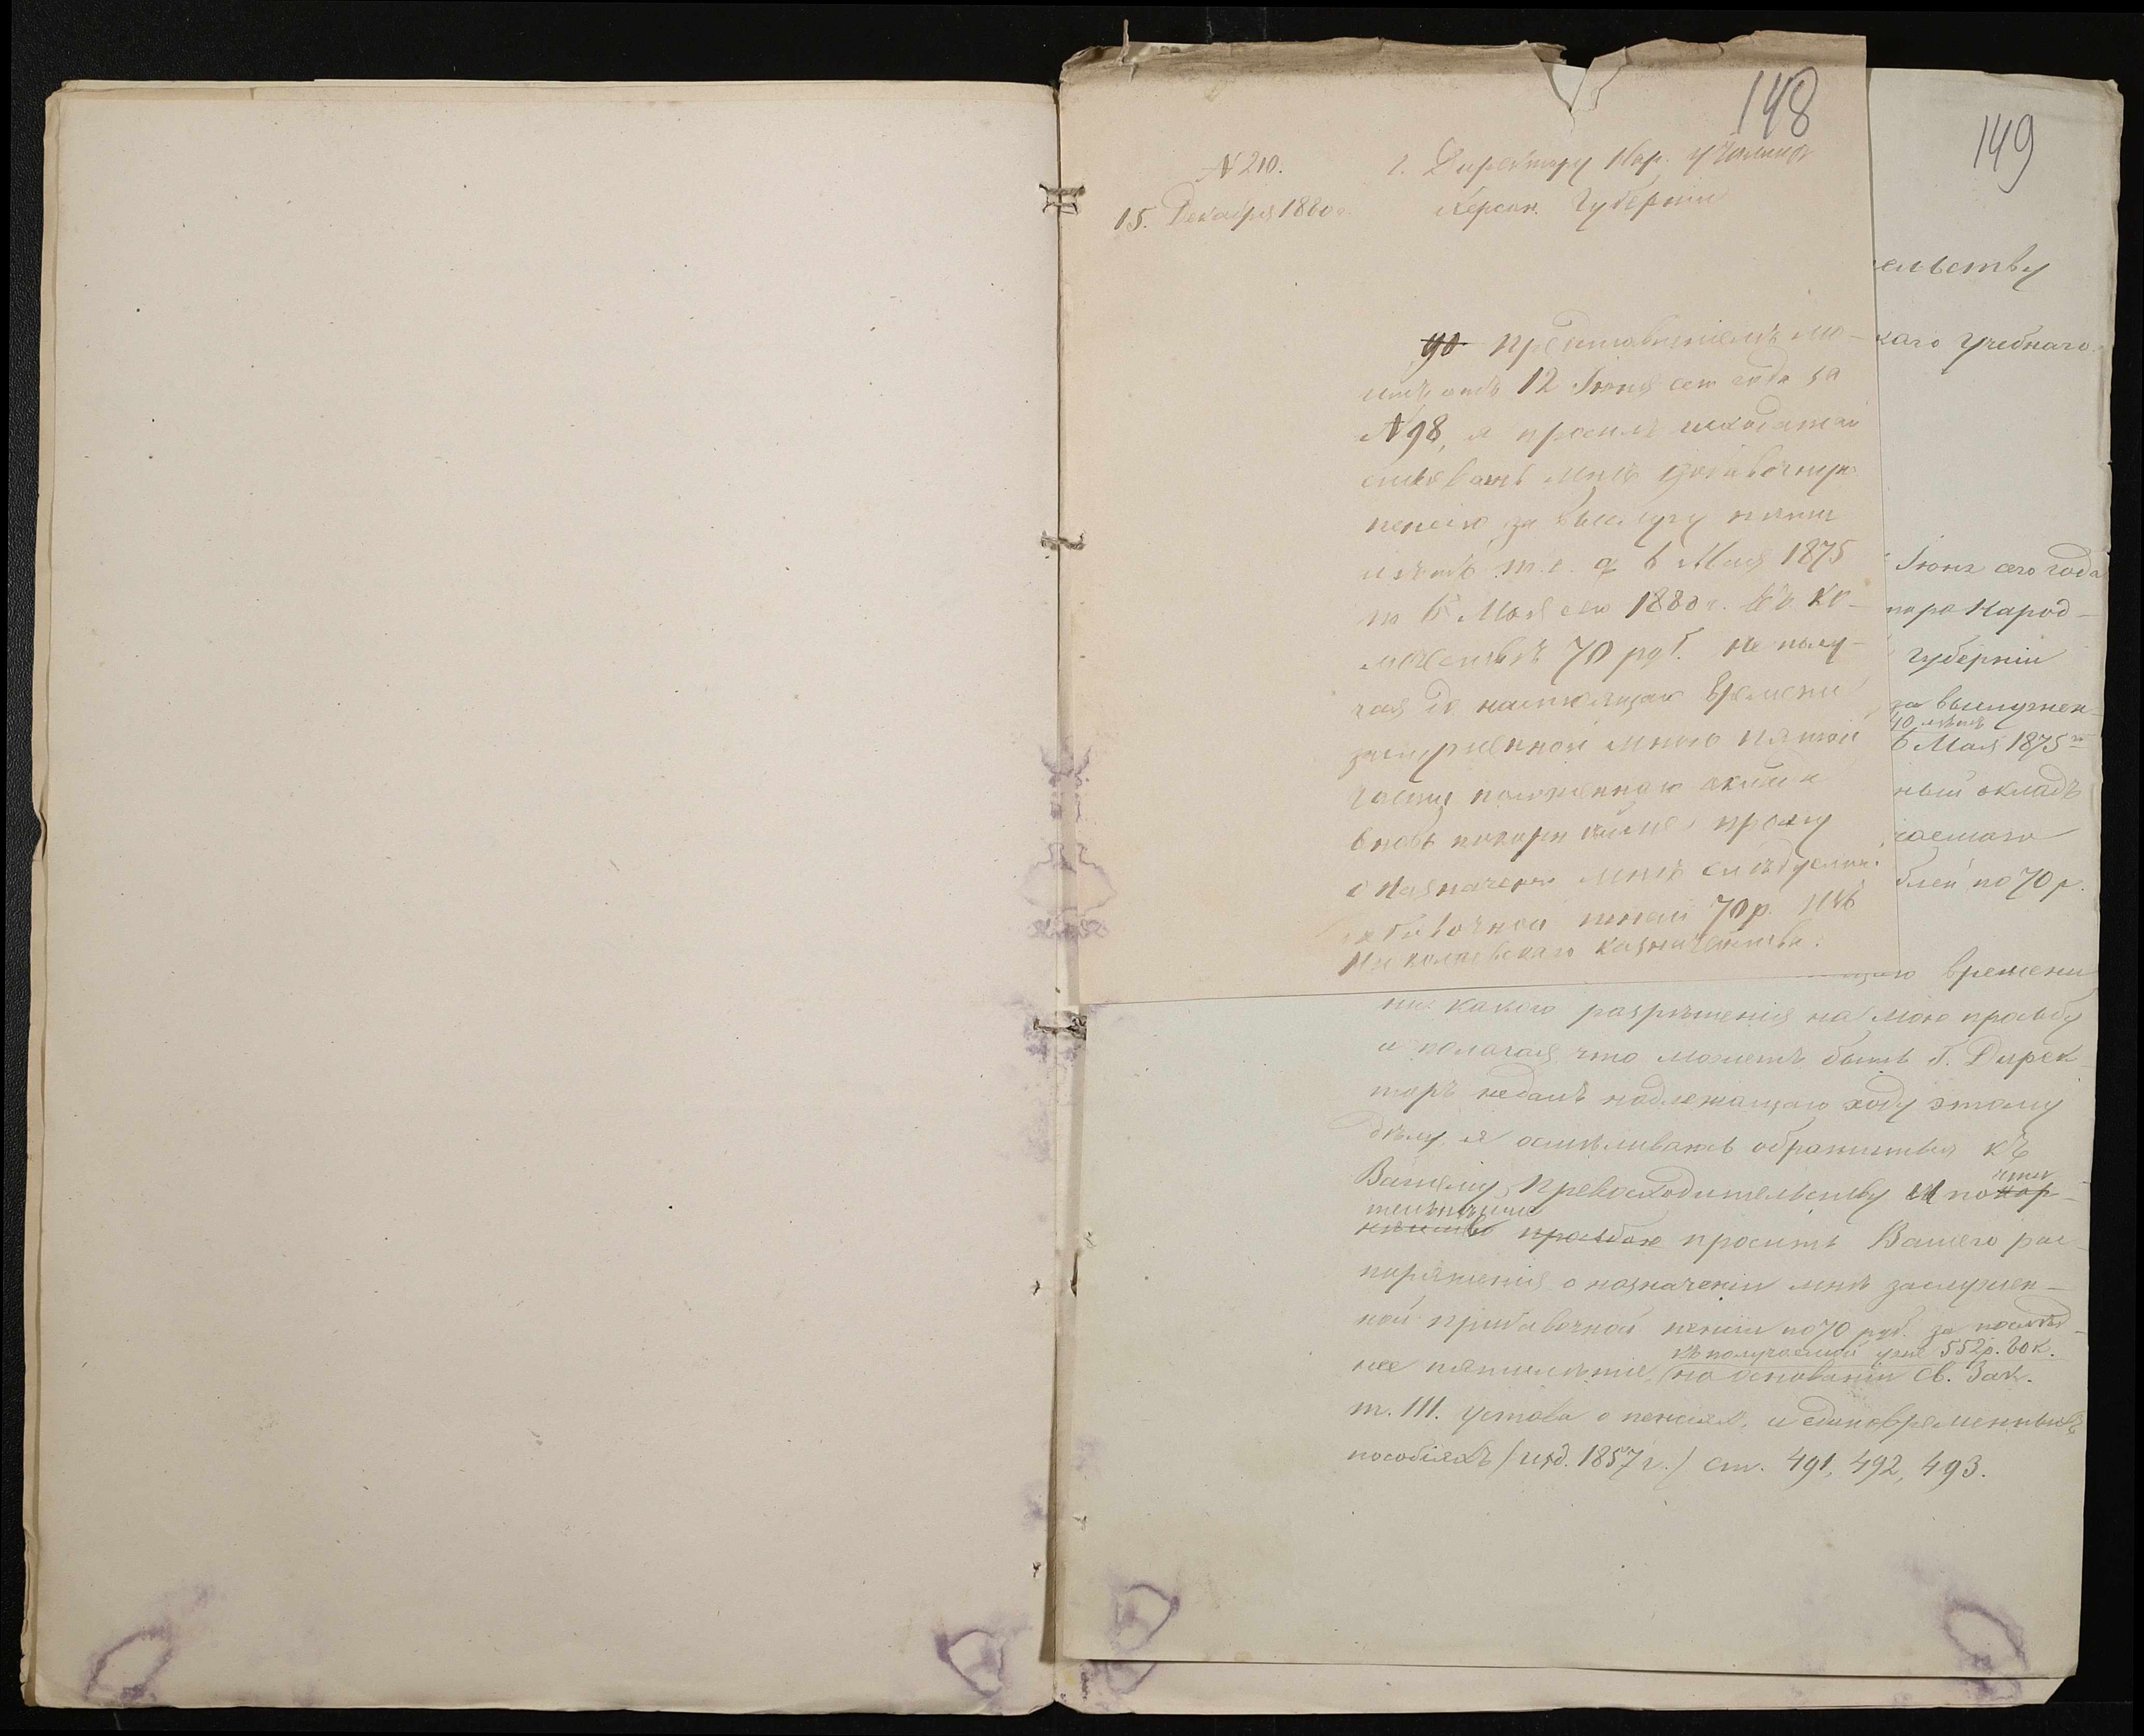 148
№ 210.
15. Декабря 1880 г.
г. Директору Нар. училищ
Херсон. Губерніи
Представленіемъ мо-
имъ отъ 12 Іюня сего года за
№ 98, я просилъ
мнѣ прибавочную
пенсію за выслугу пяти
лѣтъ т.е. съ 6 Мая 1875
по 6 Мая сего 1880 г. въ ко-
личествѣ 70 руб. Не полу-
чая до настоящаго времени
заслуженной мною пятой
части положеннаго оклада
вновь покорнѣйше прошу
о назначеніи мнѣ слѣдуемой
прибавочной пенсіи 70 р. изъ
Николаевскаго казначейства.
149
ельству
каго Учебнаго
Іюня сего года
тора Народ-
Губерніи
за выслужен-
40 лѣтъ
6 Мая 1875 г
ный окладъ
чаемаго
блей по 70 р.
щаго времени
ни какого разрѣшенія на мою просьбу
и полагая, что можетъ быть г. Дирек-
торъ недалъ надлежащаго ходу этому
дѣлу, я осмѣливаюсь обратиться къ
Вашему Превосходительству и покор-
чти
тельнѣйше
нѣйшею просьбою просить Вашего рас-
поряженія о назначеніи мнѣ заслужен-
ной прибавочной пенсіи по 70 руб. за послѣд-
къ получаемой уже 552 р. 60 к.
нее пятилѣтіе, на основаніи Св. Зак.
т. III. устава о пенсіях. и единовременныхъ
пособіяхъ (изд. 1857 г.) ст. 491, 492, 493.